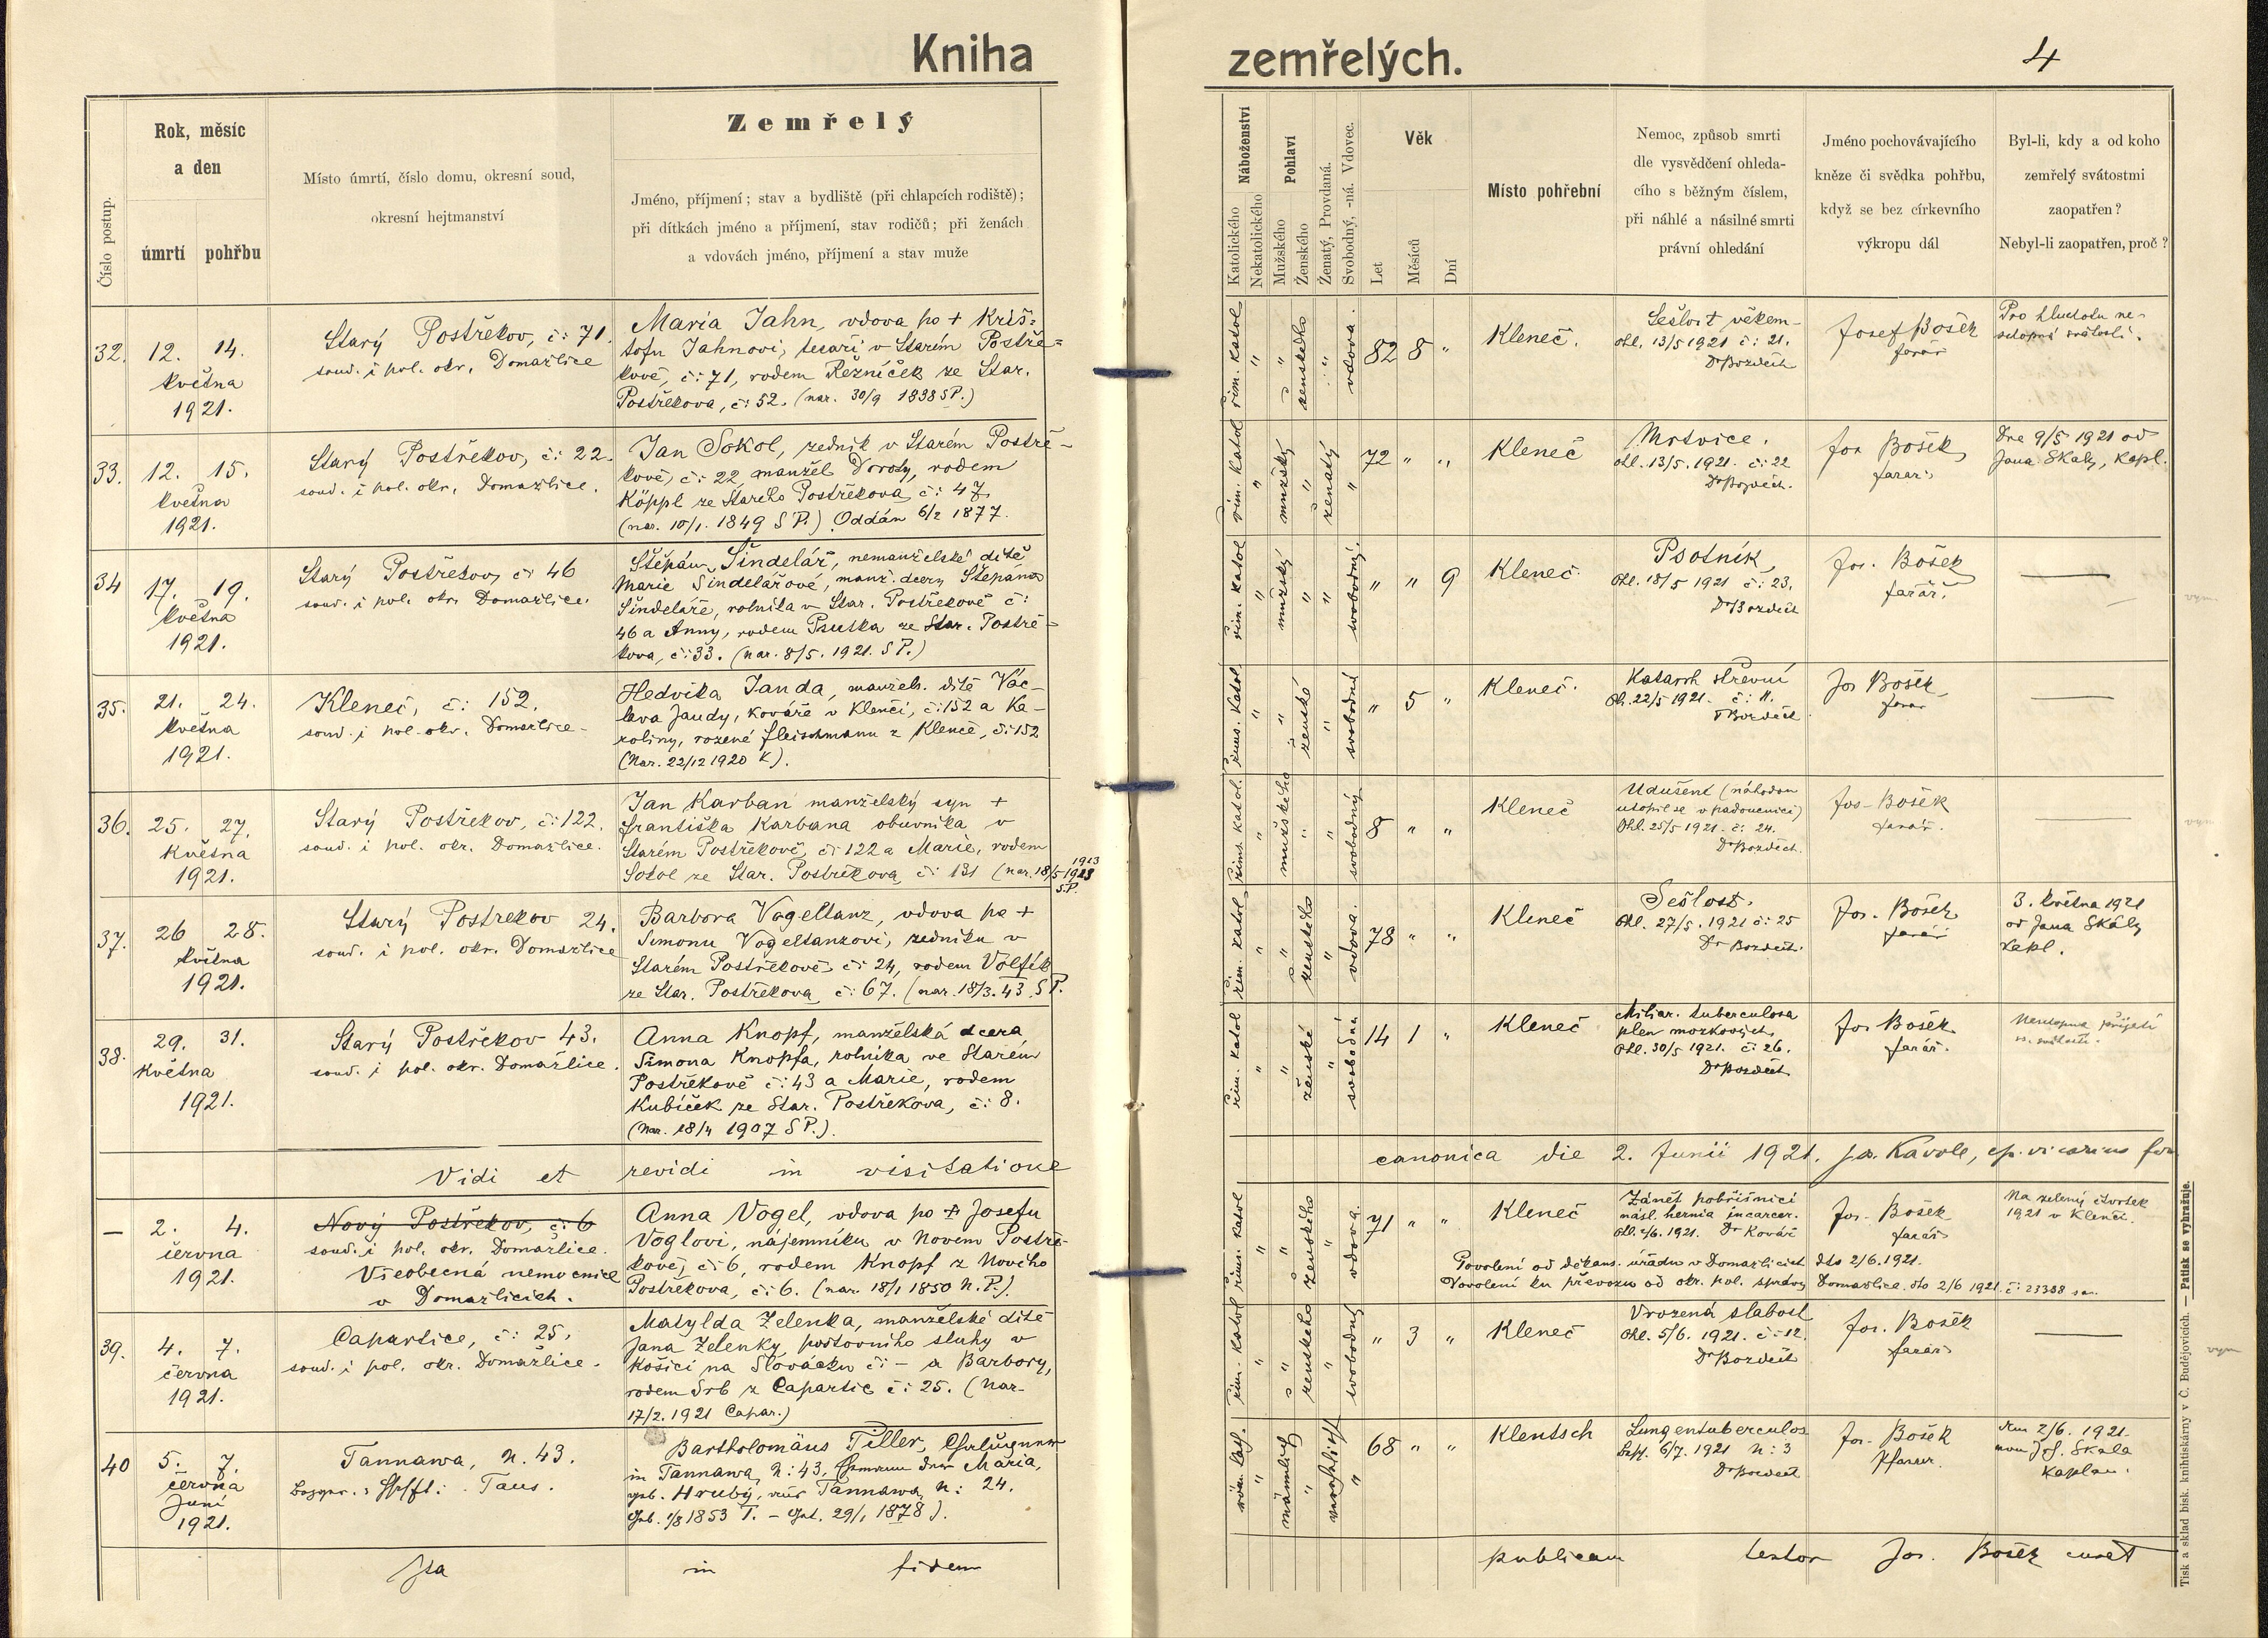 Kniha zemřelých.
4
Číslo postup.
Rok, měsíc
a den
úmrtí
pohřbu
Místo úmrtí, číslo domu, okresní soud,
okresní hejtmanství
Zemřelý
Jméno, příjmení; stav a bydliště (při chlapcích rodiště);
při dítkách jméno a příjmení, stav rodičů; při ženách
a vdovách jméno, příjmení a stav muže
Náboženství
Katolického
Nekatolického
Pohlaví
Mužského
Ženského
Ženatý, Provdaná.
Svobodný, -ná. Vdovec.
Věk
Let
Měsíců
Dní
Místo pohřební
Nemoc, způsob smrti
dle vysvědčení ohleda-
cího s běžným číslem,
při náhlé a násilné smrti
právní ohledání
Jméno pochovávajícího
kněze či svědka pohřbu,
když se bez církevního
výkropu dál
Byl-li, kdy a od koho
zemřelý svátostmi
zaopatřen?
Nebyl-li zaopatřen, proč?
32.
12. 14.
května
1921.
Starý Postřekov, č: 71.
soud. i pol. okr. Domažlice
Maria Jahn, vdova po + Kriš=
tofu Jahnovi, tesaři v Starém Postře=
kově, č: 71, rodem Řezníček ze Star.
Postřekova, č: 52. (nar. 30/9 1838 SP.)
řím. katol
"
"
ženského
"
vdova.
82 8 "
Kleneč.
Sešlost věkem
ohl. 13/5 1921 č: 21.
Dr Bozděch
Josef Bošek
farář
Pro hluchotu ne-
schopná svátostí.
33.
12. 15.
května
1921.
Starý Postřekov, č: 22.
soud. i pol. okr. Domažlice.
Jan Sokol, zedník v Starém Postře-
kově, č: 22, manžel Doroty, rodem
Köppl ze Starého Postřekova č: 47.
(nar. 10/1. 1849 S P.) Oddán 6/2 1877.
řím. katol
"
mužský
"
ženatý
"
72 " "
Kleneč
Mrtvice.
ohl. 13/5. 1921. č: 22
Dr Bozděch.
Jos Bošek
farář
Dne 9/5 1921 od
Jana Skály, kapl.
34
17. 19.
května
1921.
Starý Postřekov, č: 46
soud. i pol. okr. Domažlice.
Štěpán Šindelář, nemanželské dítě
Marie Šindelářové, manž. dcery Štěpána
Šindeláře, rolníka v Star. Postřekově č:
46 a Anny, rodem Psutka ze Star. Postře-
kova, č: 33. (nar. 8/5. 1921. S P.)
řím. katol
"
mužský
"
"
svobodný.
" " 9
Kleneč.
Psotník
Ohl. 18/5 1921 č: 23.
Dr Bozděch
Jos. Bošek
farář.
—
35.
21. 24.
května
1921.
Kleneč, č: 152.
soud. i pol. okr. Domažlice.
Hedvika Janda, manžels. dítě Vác-
lava Jandy, kováře v Klenčí, č: 152 a Ka-
roliny, rozené Fleischmann z Klenče, č: 152
(Nar. 22/12 1920 K).
říms. katol.
"
"
ženské
"
svobodné
" 5 "
Kleneč.
Katarrh střevní
Oh. 22/5 1921. č: 11.
Dr Bozděch
Jos Bošek
farář
—
36.
25. 27.
Května
1921.
Starý Postřekov, č: 122.
soud. i pol. okr. Domažlice.
Jan Karban manželský syn +
Františka Karbana obuvníka v
Starém Postřekově, č: 122 a Marie, rodem
Sokol ze Star. Postřekova, č: 131 (nar. 18/5 1913
SP.
říms. katol.
"
mužského
"
"
svobodný
8 " "
Kleneč
Udušení (náhodou
utopil se v padoucnici)
Ohl. 25/5 1921. č: 24.
Dr Bozděch.
Jos. Bošek
farář.
—
37.
26 28.
května
1921.
Starý Postřekov 24.
soud. i pol. okr. Domažlice
Barbora Vogeltanz, vdova po +
Šimonu Vogeltanzovi, zedníku v
Starém Postřekově, č: 24, rodem Volfík
ze Star. Postřekova, č: 67. (nar. 18/3. 43 S P.
řím. katol
"
"
ženského
"
vdova.
78 " "
Kleneč
Sešlost.
Ohl. 27/5. 1921 č: 25
Dr Bozděch.
Jos. Bošek
farář
3. května 1921
od Jana Skály
kapl.
38.
29. 31.
Května
1921.
Starý Postřekov 43.
soud. i pol. okr. Domažlice.
Anna Knopf, manželská dcera
Šimona Knopfa, rolníka ve Starém
Postřekově č: 43 a Marie, rodem
Kubíček ze Star. Postřekova, č: 8.
(Nar. 18/4 1907 S P.).
řím. katol
"
"
ženské
"
svobodná
14 1 "
Kleneč
Miliar. tuberculosa
plen mozkových.
Ohl. 30/5 1921. č: 26.
Dr Bozděch.
Jos Bošek
farář.
Neschopna přijetí
sv. svátostí.
Vidi et revidi in visitatione canonica die 2. Junii 1921.
—
2. 4.
června
1921.
Nový Postřekov, č: 6
soud. i pol. okr. Domažlice.
Všeobecná nemocnice
v Domažlicích.
Anna Vogel, vdova po + Josefu
Voglovi, nájemníku v Novém Postře-
kově, č: 6, rodem Knopf z Nového
Postřekova, č: 6. (nar. 18/1 1850 N. P.).
říms. katol.
"
"
ženského
"
vdova
71 " "
Kleneč
Zánět pobřišnice
násl. hernia incarcer.
Ohl. 2/6. 1921. Dr Kovář
Jos. Bošek
farář
Na zelený čtvrtek
1921 v Klenčí.
Povolení od děkans. úřadu v Domažlicích dto 2/6. 1921.
Povolení ku převozu od okr. pol. správy Domažlice. dto 2/6 1921. č: 23388
39.
4. 7.
června
1921.
Capartice, č: 25.
soud. i pol. okr. Domažlice.
Matylda Zelenka, manželské dítě
Jana Zelenky, poštovního sluhy v
Košicí na Slovácku č: — a Barbory,
rodem Srb z Capartic č: 25. (nar.
17/2. 1921 Capar.)
řím. katol
"
"
ženského
"
svobodný
" 3 "
Kleneč
Vrozená slabost
Ohl. 5/6. 1921. č: 12.
Dr Bozděch
Jos. Bošek
farář
—
40
5. 7.
června
Juni
1921.
Tannawa, N. 43.
Taus.
Bartholomäus Tiller,
in Tannawa, N: 43, Maria,
geb. Hrubý, aus Tannawa, N: 24.
Geb. 1/8 1853 T. — Get. 29/1 1878).
röm. kath.
"
männlich
"
verehelicht
"
68 " "
Klentsch
Lungentuberculos
6/7. 1921 N: 3
Dr Bozděch
Jos. Bošek
Pfarrer.
Am 2/6. 1921.
von Jos. Skala
Kaplan.
Ita in fidem publicam testor Jos. Bošek
Tisk a sklad bisk. knihtiskárny v Č. Budějovicích. — Patisk se vyhražuje.